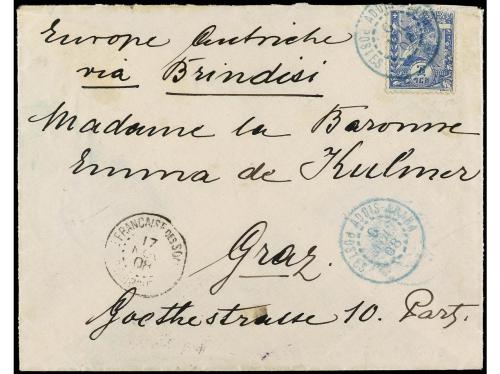 Europe Autriche
via Brindisi
Madame la Baronne
Emma de Kulmer
Graz.
Goethestrasse 10. Part.
POSTES ADDIS-
POSTES ADDIS-ABEBA
08
FRANÇAISE DES SO
17
08